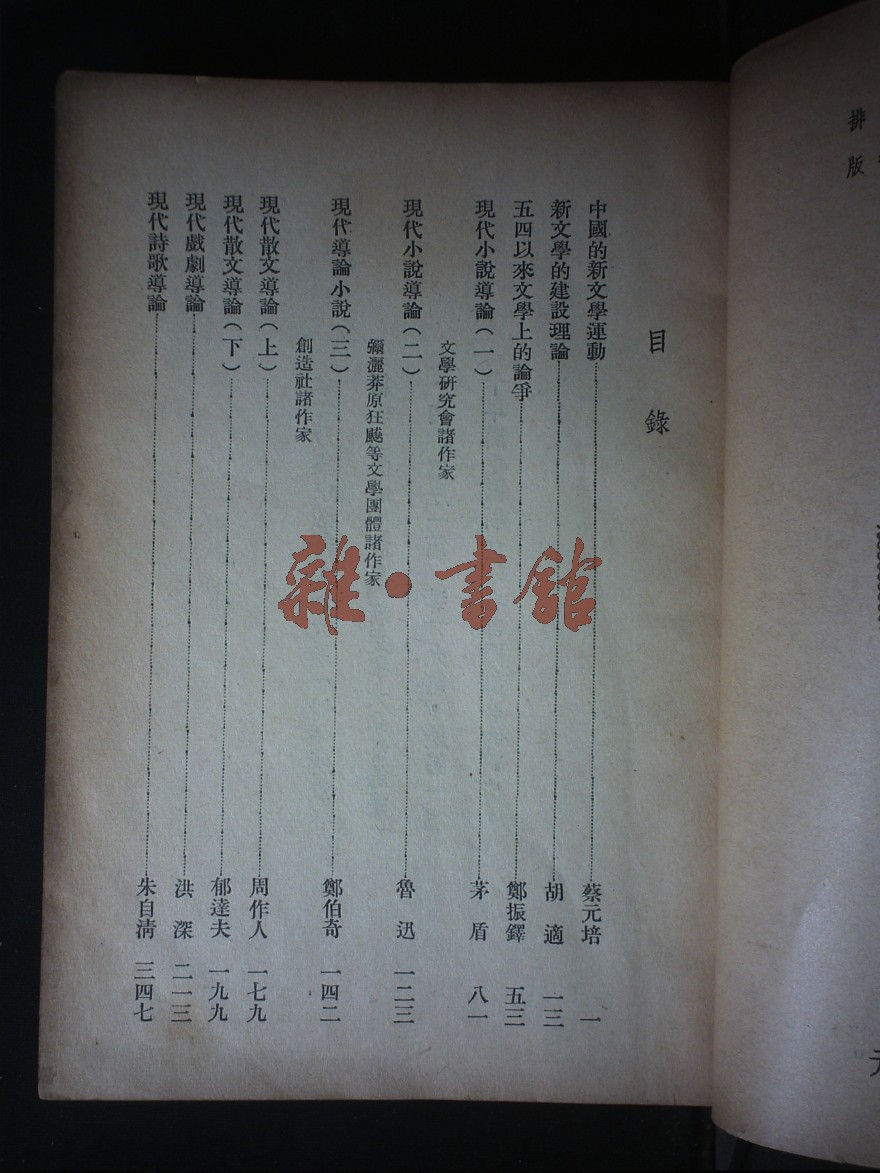 排版
目錄
中國的新文學運動 蔡元培 一
新文學的建設理論 胡適 一三
五四以來文學上的論爭 鄭振鐸 五三
現代小說導論（一） 茅盾 八一
文學研究會諸作家
現代小說導論（二） 魯迅 一二三
彌灑莽原狂飈等文學團體諸作家
現代導論小說（三） 鄭伯奇 一四二
創造社諸作家
現代散文導論（上） 周作人 一七九
現代散文導論（下） 郁達夫 一九九
現代戲劇導論 洪深 二一三
現代詩歌導論 朱自清 三四七
雜·書館